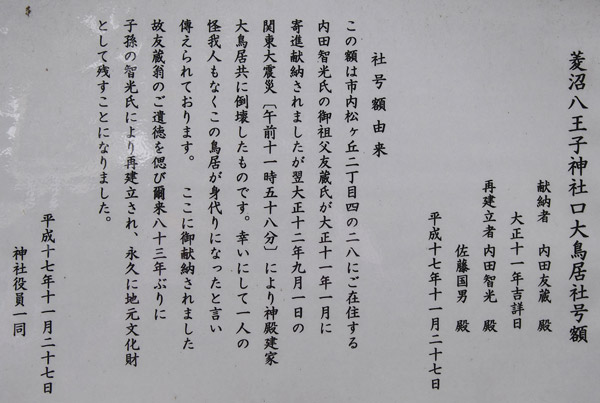 菱沼八王子神社口大鳥居社号額
献納者 内田友蔵 殿
大正十一年吉詳日
再建立者 内田智光 殿
佐藤国男 殿
平成十七年十一月二十七日
社号額由来
この額は市内松ヶ丘二丁目四の二八にご在住する
内田智光氏の御祖父友蔵氏が大正十一年一月に
寄進献納されましたが翌大正十二年九月一日の
関東大震災〔午前十一時五十八分〕により神殿建家
大鳥居共に倒壊したものです。幸いにして一人の
怪我人もなくこの鳥居が身代りになったと言い
傳えられております。 ここに御献納されました
故友蔵翁のご遺徳を偲び爾来八十三年ぶりに
子孫の智光氏により再建立され、永久に地元文化財
として残すことになりました。
平成十七年十一月二十七日
神社役員一同